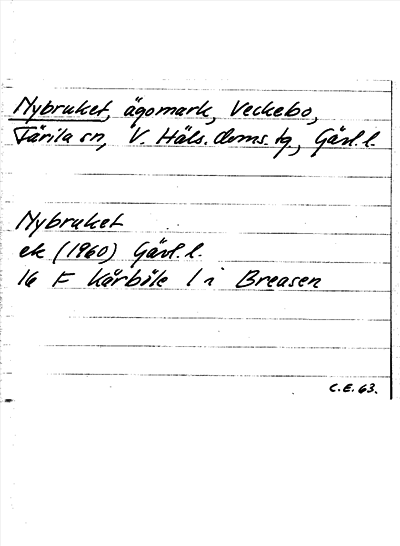 Nybruket, ägomark, Veckebo,
Färila sn, V. Häls. doms. tg, Gävl. l.
Nybruket
ek (1960) Gävl. l.
16 F Kårböle 1 i Breasen
C.E. 63.